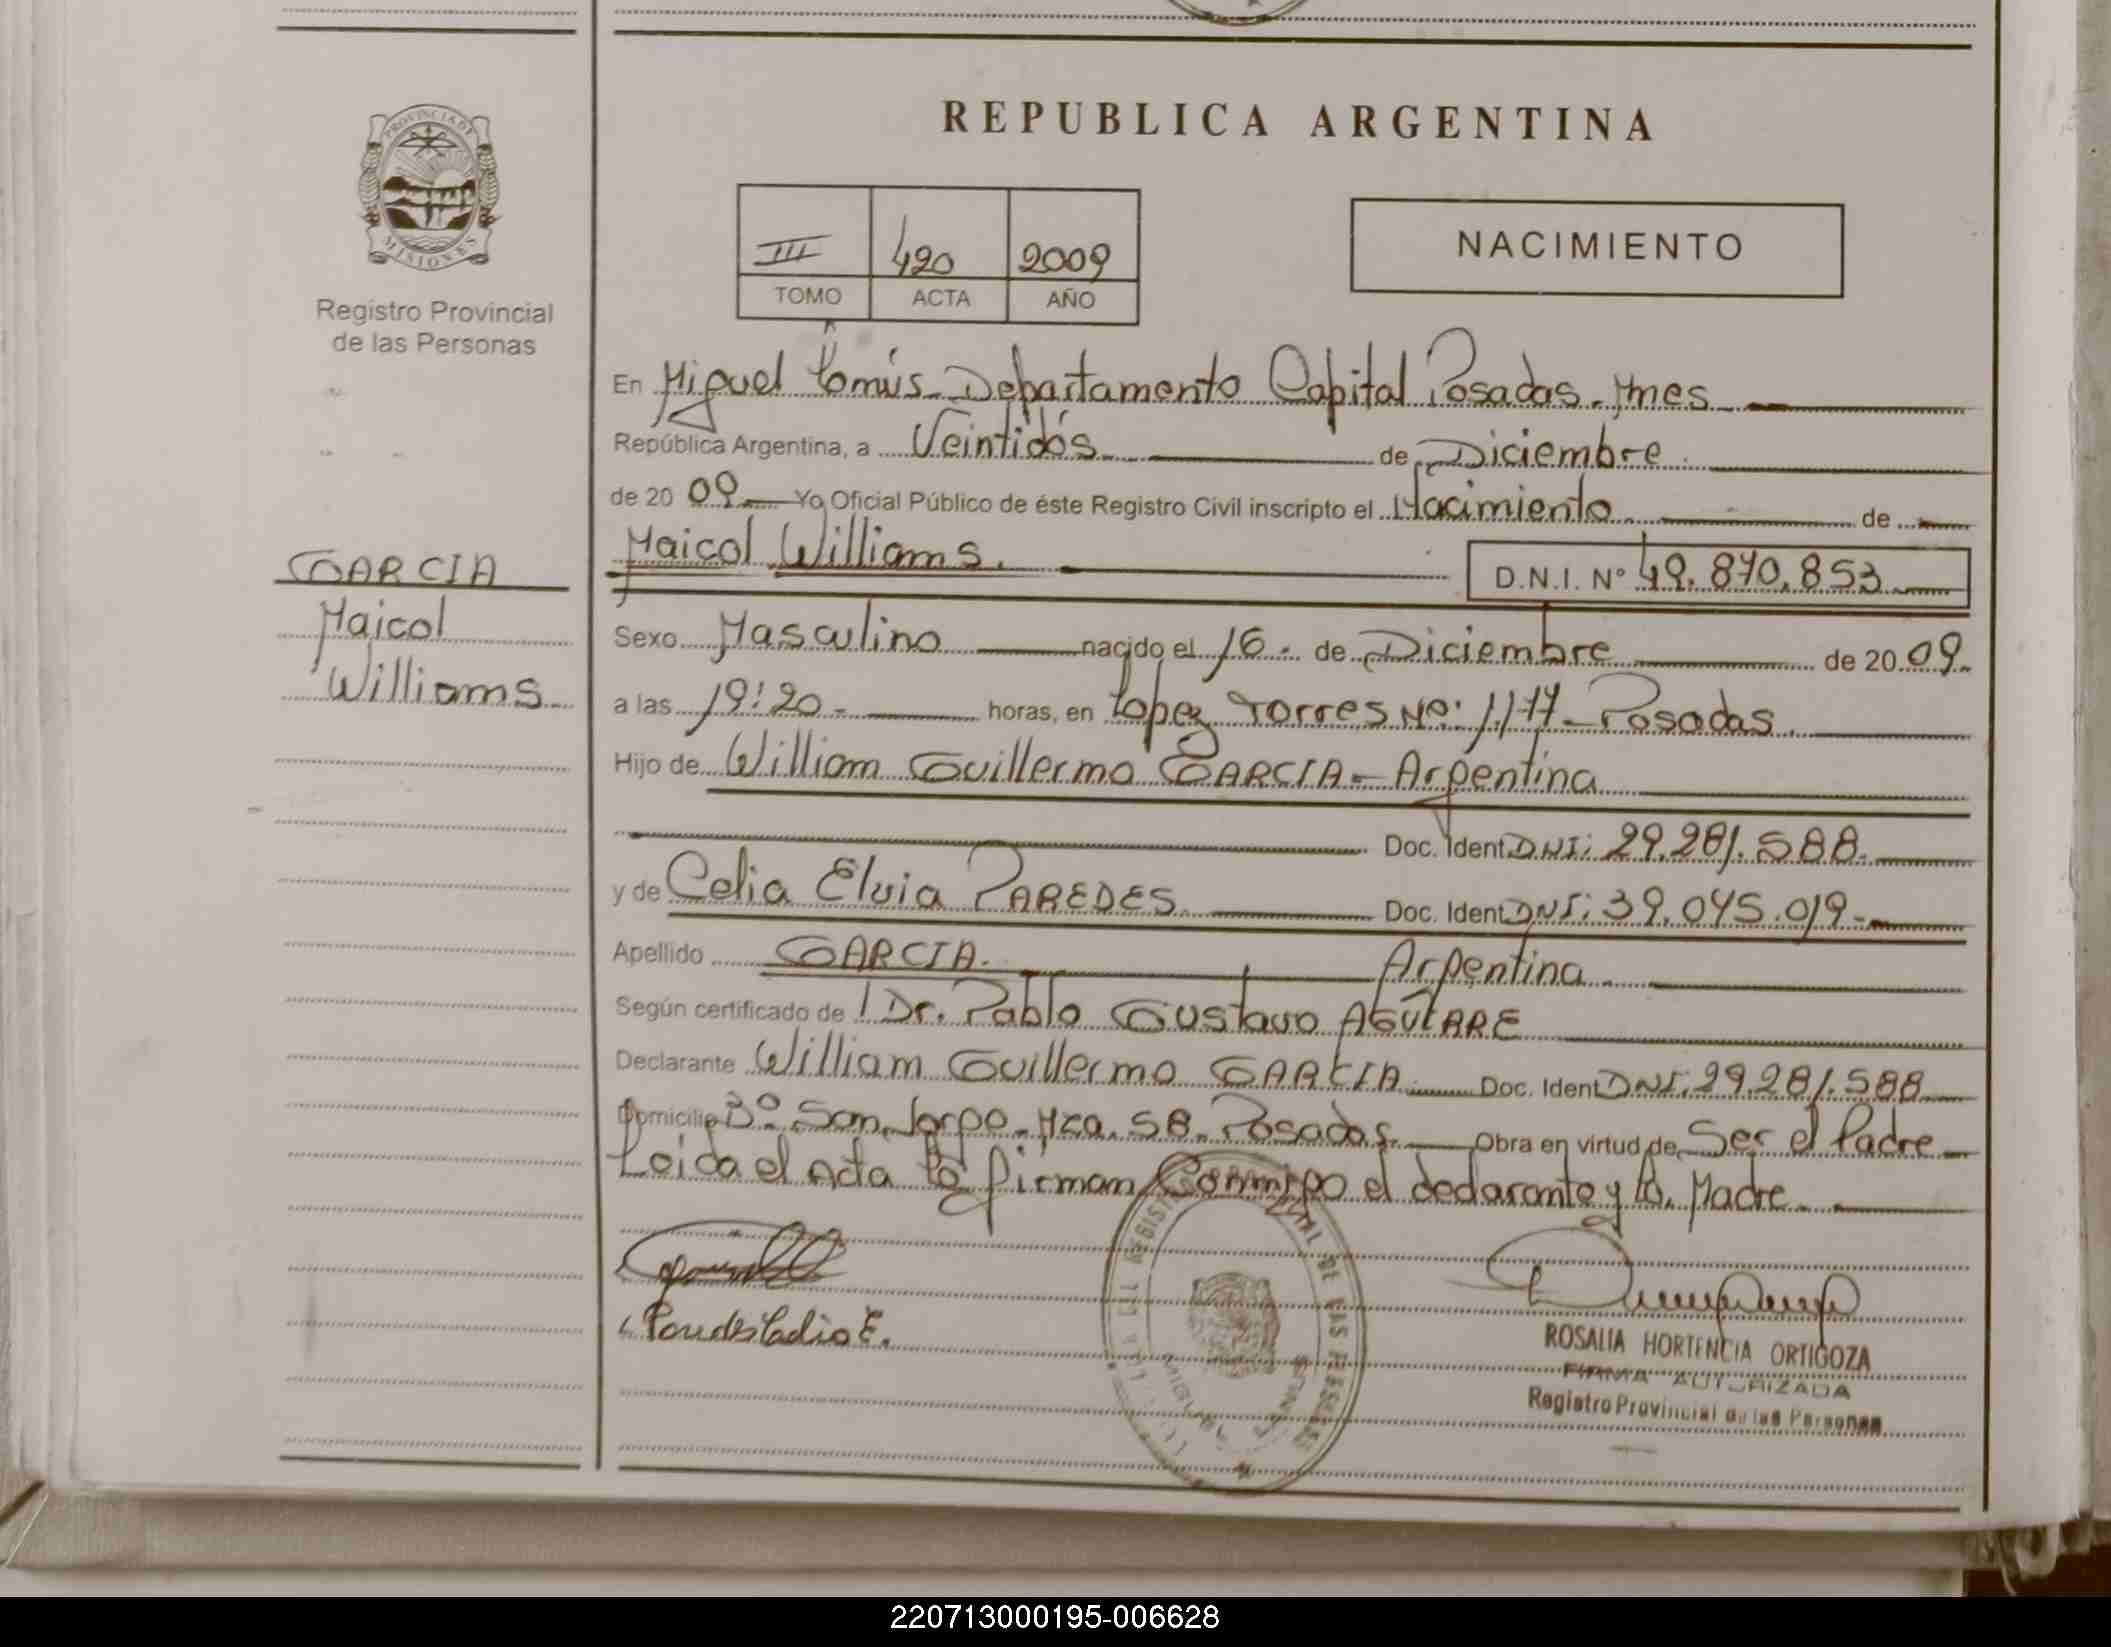 REPUBLICA ARGENTINA
PROVINCIA DE
MISIONES
Registro Provincial
de las Personas
III 420 2009
TOMO ACTA AÑO
NACIMIENTO
En Miguel Lanús - Departamento Capital Posadas - Mnes
República Argentina, a Veintidós de Diciembre
de 20 09 Yo Oficial Público de éste Registro Civil inscripto el Nacimiento de
Maicol Williams.
D.N.I. Nº 49.870.853
GARCIA
Maicol
Williams
Sexo Masculino nacido el 16 - de Diciembre de 20 09
a las 19:20 - horas, en Lopez Torres Nº: 1177 - Posadas
Hijo de William Guillermo GARCIA - Argentina
Doc. Ident DNI: 29.281.588.
y de Celia Elvia PAREDES Doc. Ident DNI: 39.045.019 -
Apellido GARCIA. Argentina
Según certificado de Dr. Pablo Gustavo
Declarante William Guillermo GARCIA Doc. Ident DNI: 29.281.588
Domicilio Bº San Jorge - Mza. 58 - Posadas Obra en virtud de Ser el Padre
Leida el Acta la firman Conmigo el declarante y la Madre
ROSALIA HORTENCIA ORTIGOZA
FIRMA AUTORIZADA
Registro Provincial de las Personas
220713000195-006628